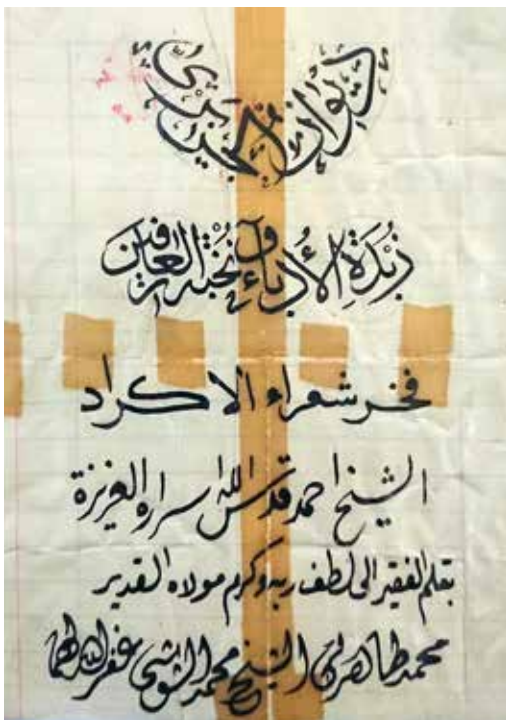 ديوان الجزيري
زُبْدَةِ الأُدباءِ و نُخْبة العارفين
فخر شعراء الاكراد
الشيخ احمد قدس الله اسراره العزيزة
بقلم الفقير الى لطف ربه وكرم مولاه القدير
محمد طاهر بن الشيخ محمد الشوشي غفر الله لهما